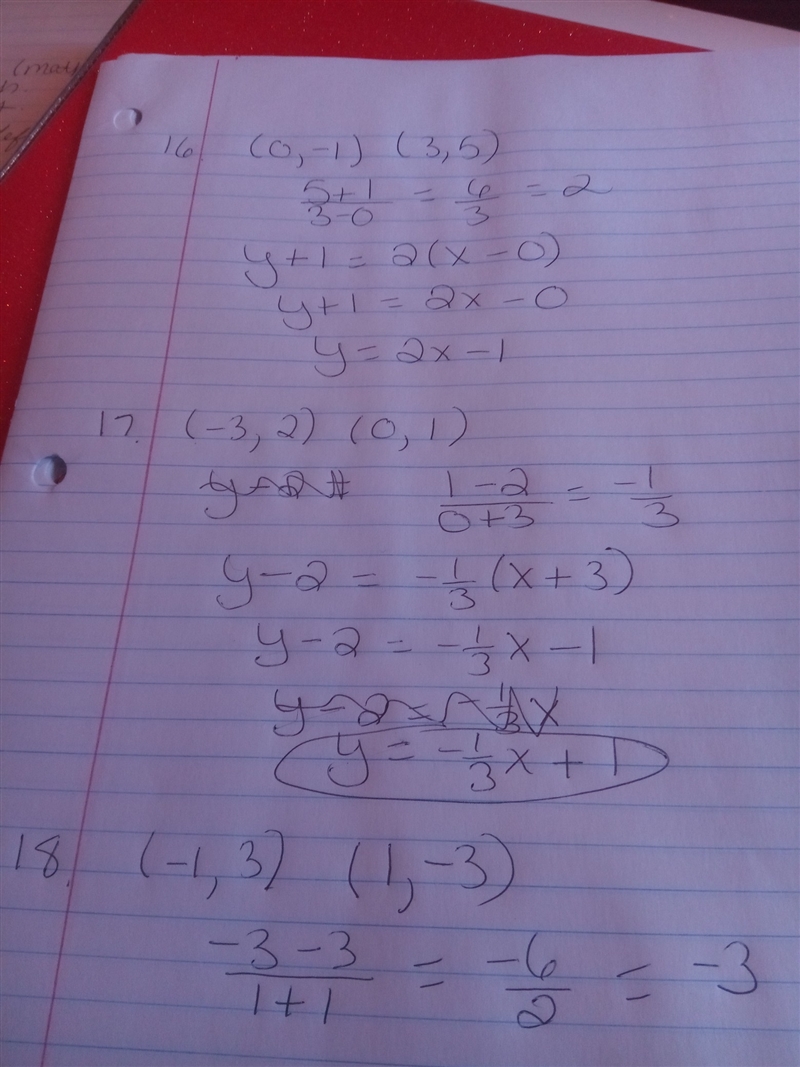 (mat
16. (0, -1) (3, 5)
5+1/3-0 = 6/3 = 2
y+1 = 2(x-0)
y+1 = 2x-0
y = 2x-1
17. (-3, 2) (0, 1)
1-2/0+3 = -1/3
y-2 = -1/3(x+3)
y-2 = -1/3x-1
y-2 = -1/3x
y = -1/3x+1
18. (-1, 3) (1, -3)
-3-3/1+1 = -6/2 = -3